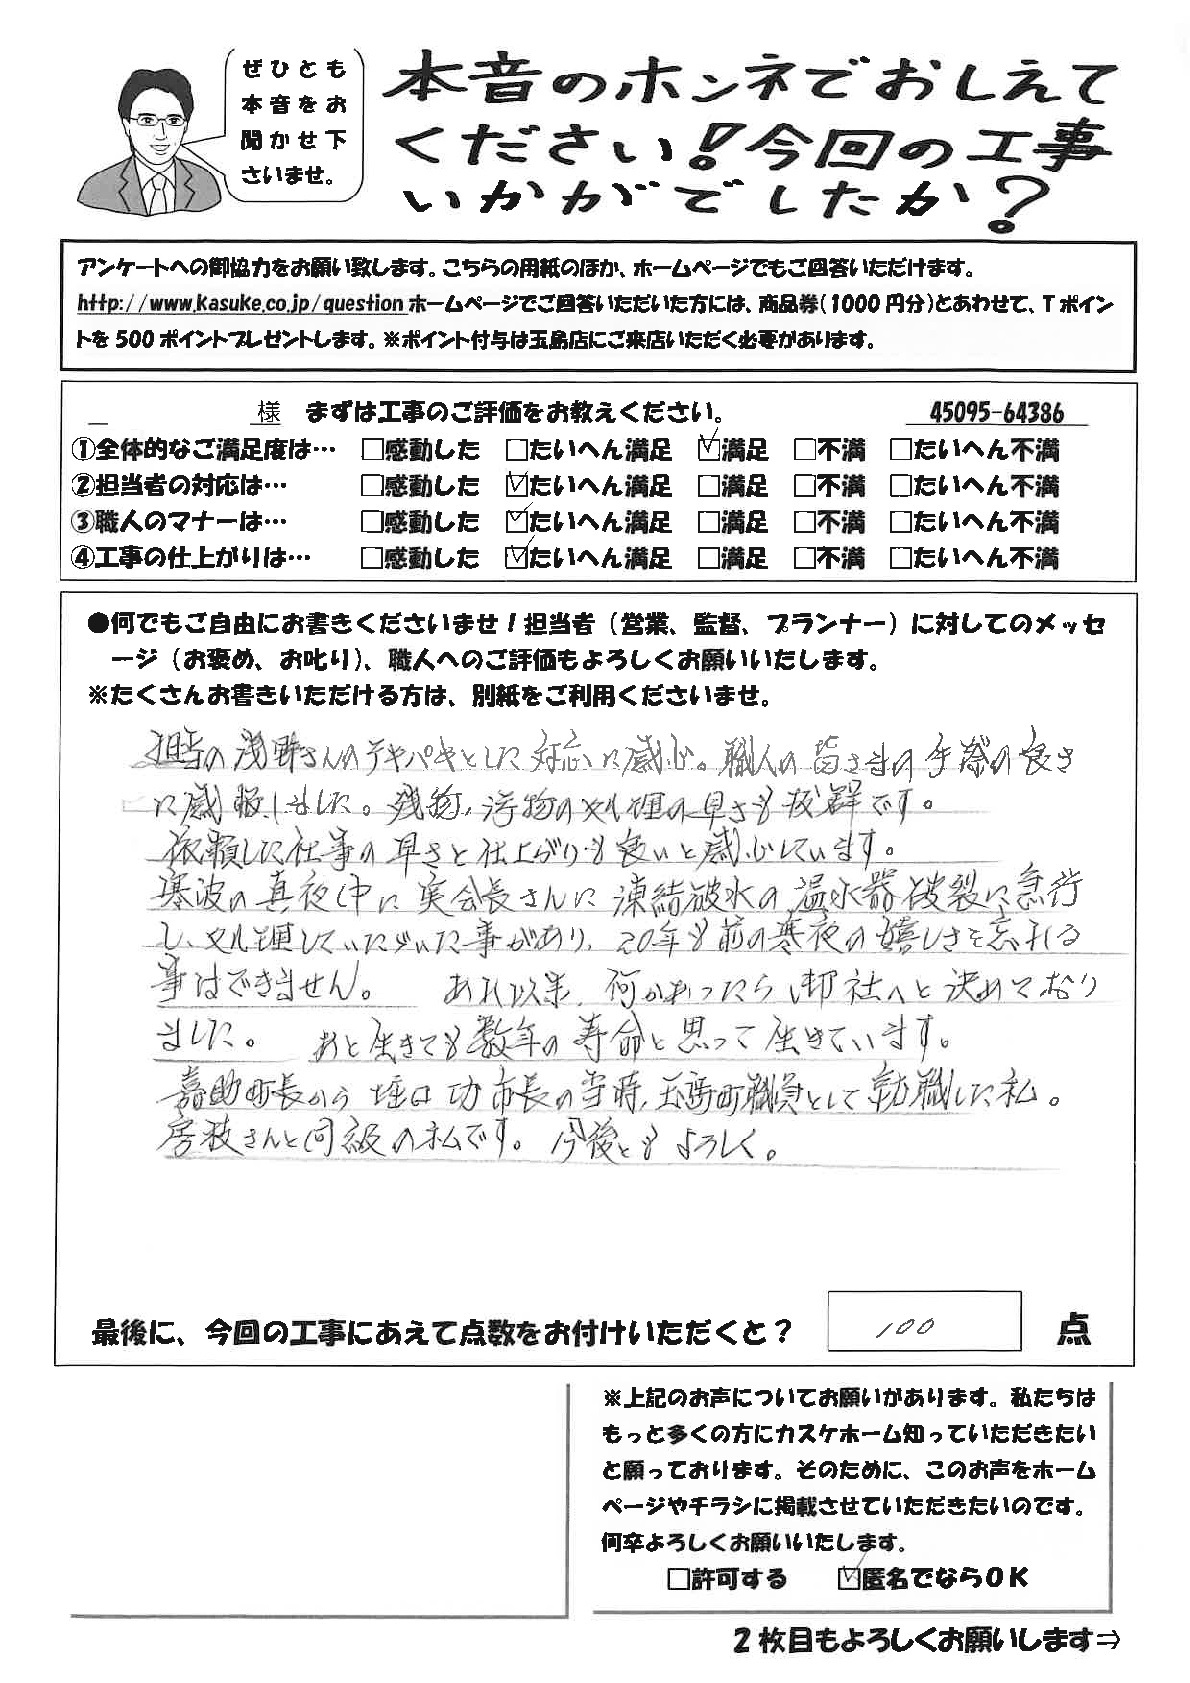 ぜひとも
本音をお
聞かせ下
さいませ。
本音のホンネでおしえて
ください!今回の工事
いかがでしたか?
アンケートへの御協力をお願い致します。こちらの用紙のほか、ホームページでもご回答いただけます。
http://www.kasuke.co.jp/questionホームページでご回答いただいた方には、商品券(1000円分)とあわせて、Tポイン
トを500ポイントプレゼントします。※ポイント付与は玉島店にご来店いただく必要があります。
様 まずは工事のご評価をお教えください。 45095-64386
①全体的なご満足度は… □感動した □たいへん満足 ☑満足 □不満 □たいへん不満
②担当者の対応は… □感動した ☑たいへん満足 □満足 □不満 □たいへん不満
③職人のマナーは… □感動した ☑たいへん満足 □満足 □不満 □たいへん不満
④工事の仕上がりは… □感動した ☑たいへん満足 □満足 □不満 □たいへん不満
●何でもご自由にお書きくださいませ!担当者(営業、監督、プランナー)に対してのメッセ
ージ(お褒め、お叱り)、職人へのご評価もよろしくお願いいたします。
※たくさんお書きいただける方は、別紙をご利用くださいませ。
担当の浅野さんのテキパキとした対応に感心。職人の皆さまの手際の良さ
に感服しました。残物,汚物の処理の早さも抜群です。
依頼した仕事の早さと仕上がりも良いと感心しています。
寒波の真夜中に実会長さんに凍結破水の温水器破裂に急行
し、処理していただいた事があり、20年も前の寒夜の嬉しさを忘れる
事はできません。 あれ以来、何かあったら御社へと決めており
ました。 あと生きても数年の寿命と思って生きています。
嘉助町長から堀口功市長の当時、玉島町職員として就職した私。
房枝さんと同級の私です。今後ともよろしく。
最後に、今回の工事にあえて点数をお付けいただくと? 100 点
※上記のお声についてお願いがあります。私たちは
もっと多くの方にカスケホーム知っていただきたい
と願っております。そのために、このお声をホーム
ページやチラシに掲載させていただきたいのです。
何卒よろしくお願いいたします。
□許可する ☑匿名でならOK
2枚目もよろしくお願いします⇒